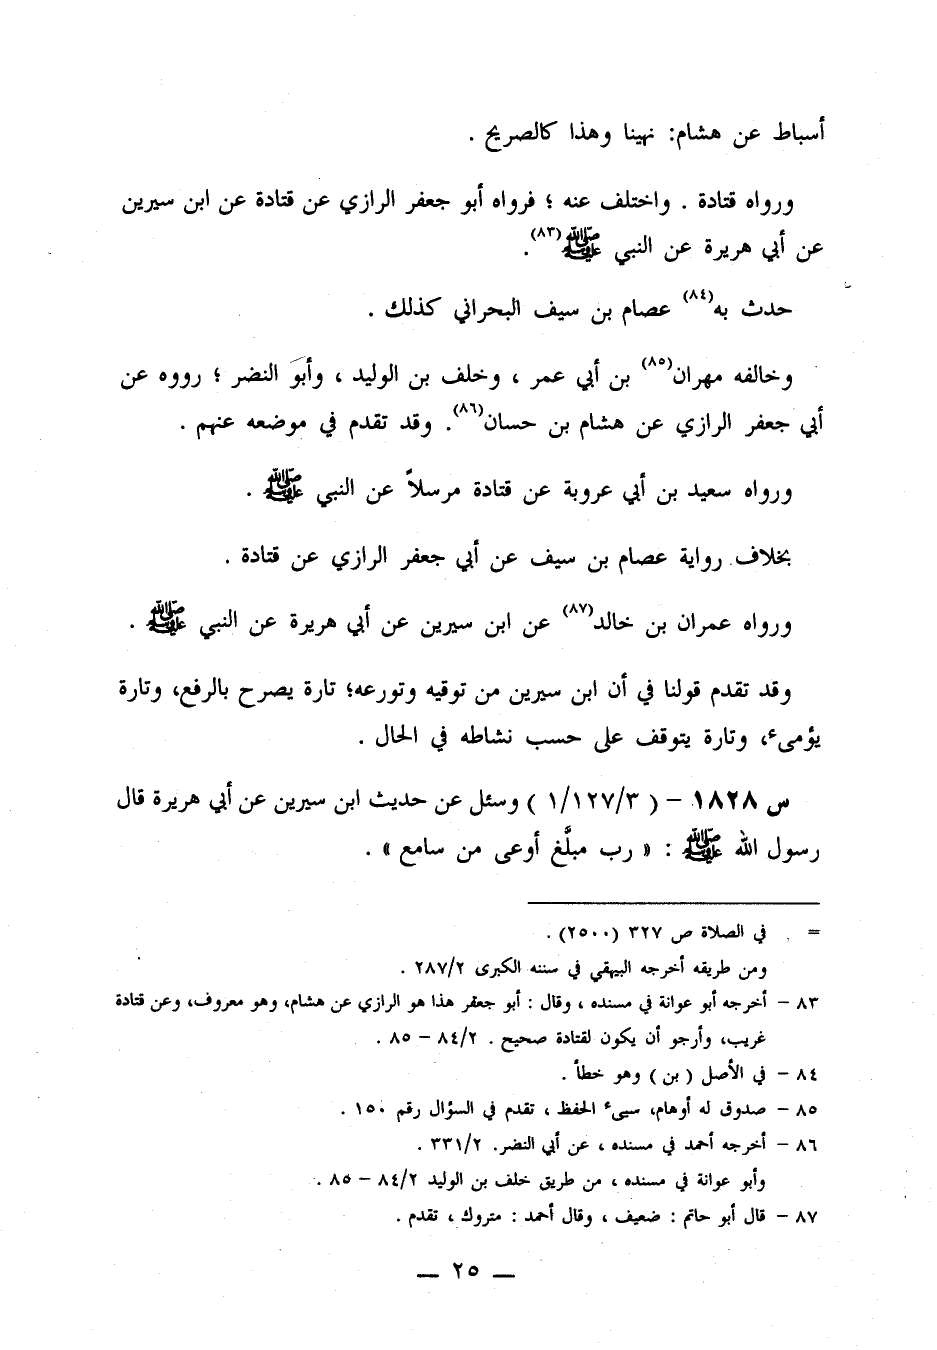 أسباط عن هشام: نهينا وهذا كالصريح .
ورواه قتادة . واختلف عنه ؛ فرواه أبو جعفر الرازي عن قتادة عن ابن سيرين
عن أبي هريرة عن النبي ﷺ(٨٣).
حدث به(٨٤) عصام بن سيف البحراني كذلك .
وخالفه مهران(٨٥) بن أبي عمر ، وخلف بن الوليد ، وأبو النضر ؛ رووه عن
أبي جعفر الرازي عن هشام بن حسان(٨٦). وقد تقدم في موضعه عنهم .
ورواه سعيد بن أبي عروبة عن قتادة مرسلاً عن النبي ﷺ .
بخلاف رواية عصام بن سيف عن أبي جعفر الرازي عن قتادة .
ورواه عمران بن خالد(٨٧) عن ابن سيرين عن أبي هريرة عن النبي ﷺ .
وقد تقدم قولنا في أن ابن سيرين من توقيه وتورعه؛ تارة يصرح بالرفع، وتارة
يؤمىء، وتارة يتوقف على حسب نشاطه في الحال .
س ١٨٢٨ - ( ١/١٢٧/٣ ) وسئل عن حديث ابن سيرين عن أبي هريرة قال
رسول الله ﷺ : « رب مبلَّغ أوعى من سامع » .
= في الصلاة ص ٣٢٧ (٢٥٠٠) .
ومن طريقه أخرجه البيهقي في سننه الكبرى ٢٨٧/٢ .
٨٣ - أخرجه أبو عوانة في مسنده ، وقال : أبو جعفر هذا هو الرازي عن هشام، وهو معروف، وعن قتادة
غريب، وأرجو أن يكون لقتادة صحيح . ٨٤/٢ - ٨٥ .
٨٤ - في الأصل ( بن ) وهو خطأ .
٨٥ - صدوق له أوهام، سيىء الحفظ ، تقدم في السؤال رقم ١٥٠ .
٨٦ - أخرجه أحمد في مسنده ، عن أبي النضر. ٣٣١/٢ .
وأبو عوانة في مسنده ، من طريق خلف بن الوليد ٨٤/٢ - ٨٥ .
٨٧ - قال أبو حاتم : ضعيف ، وقال أحمد : متروك ، تقدم .
— ٢٥ —